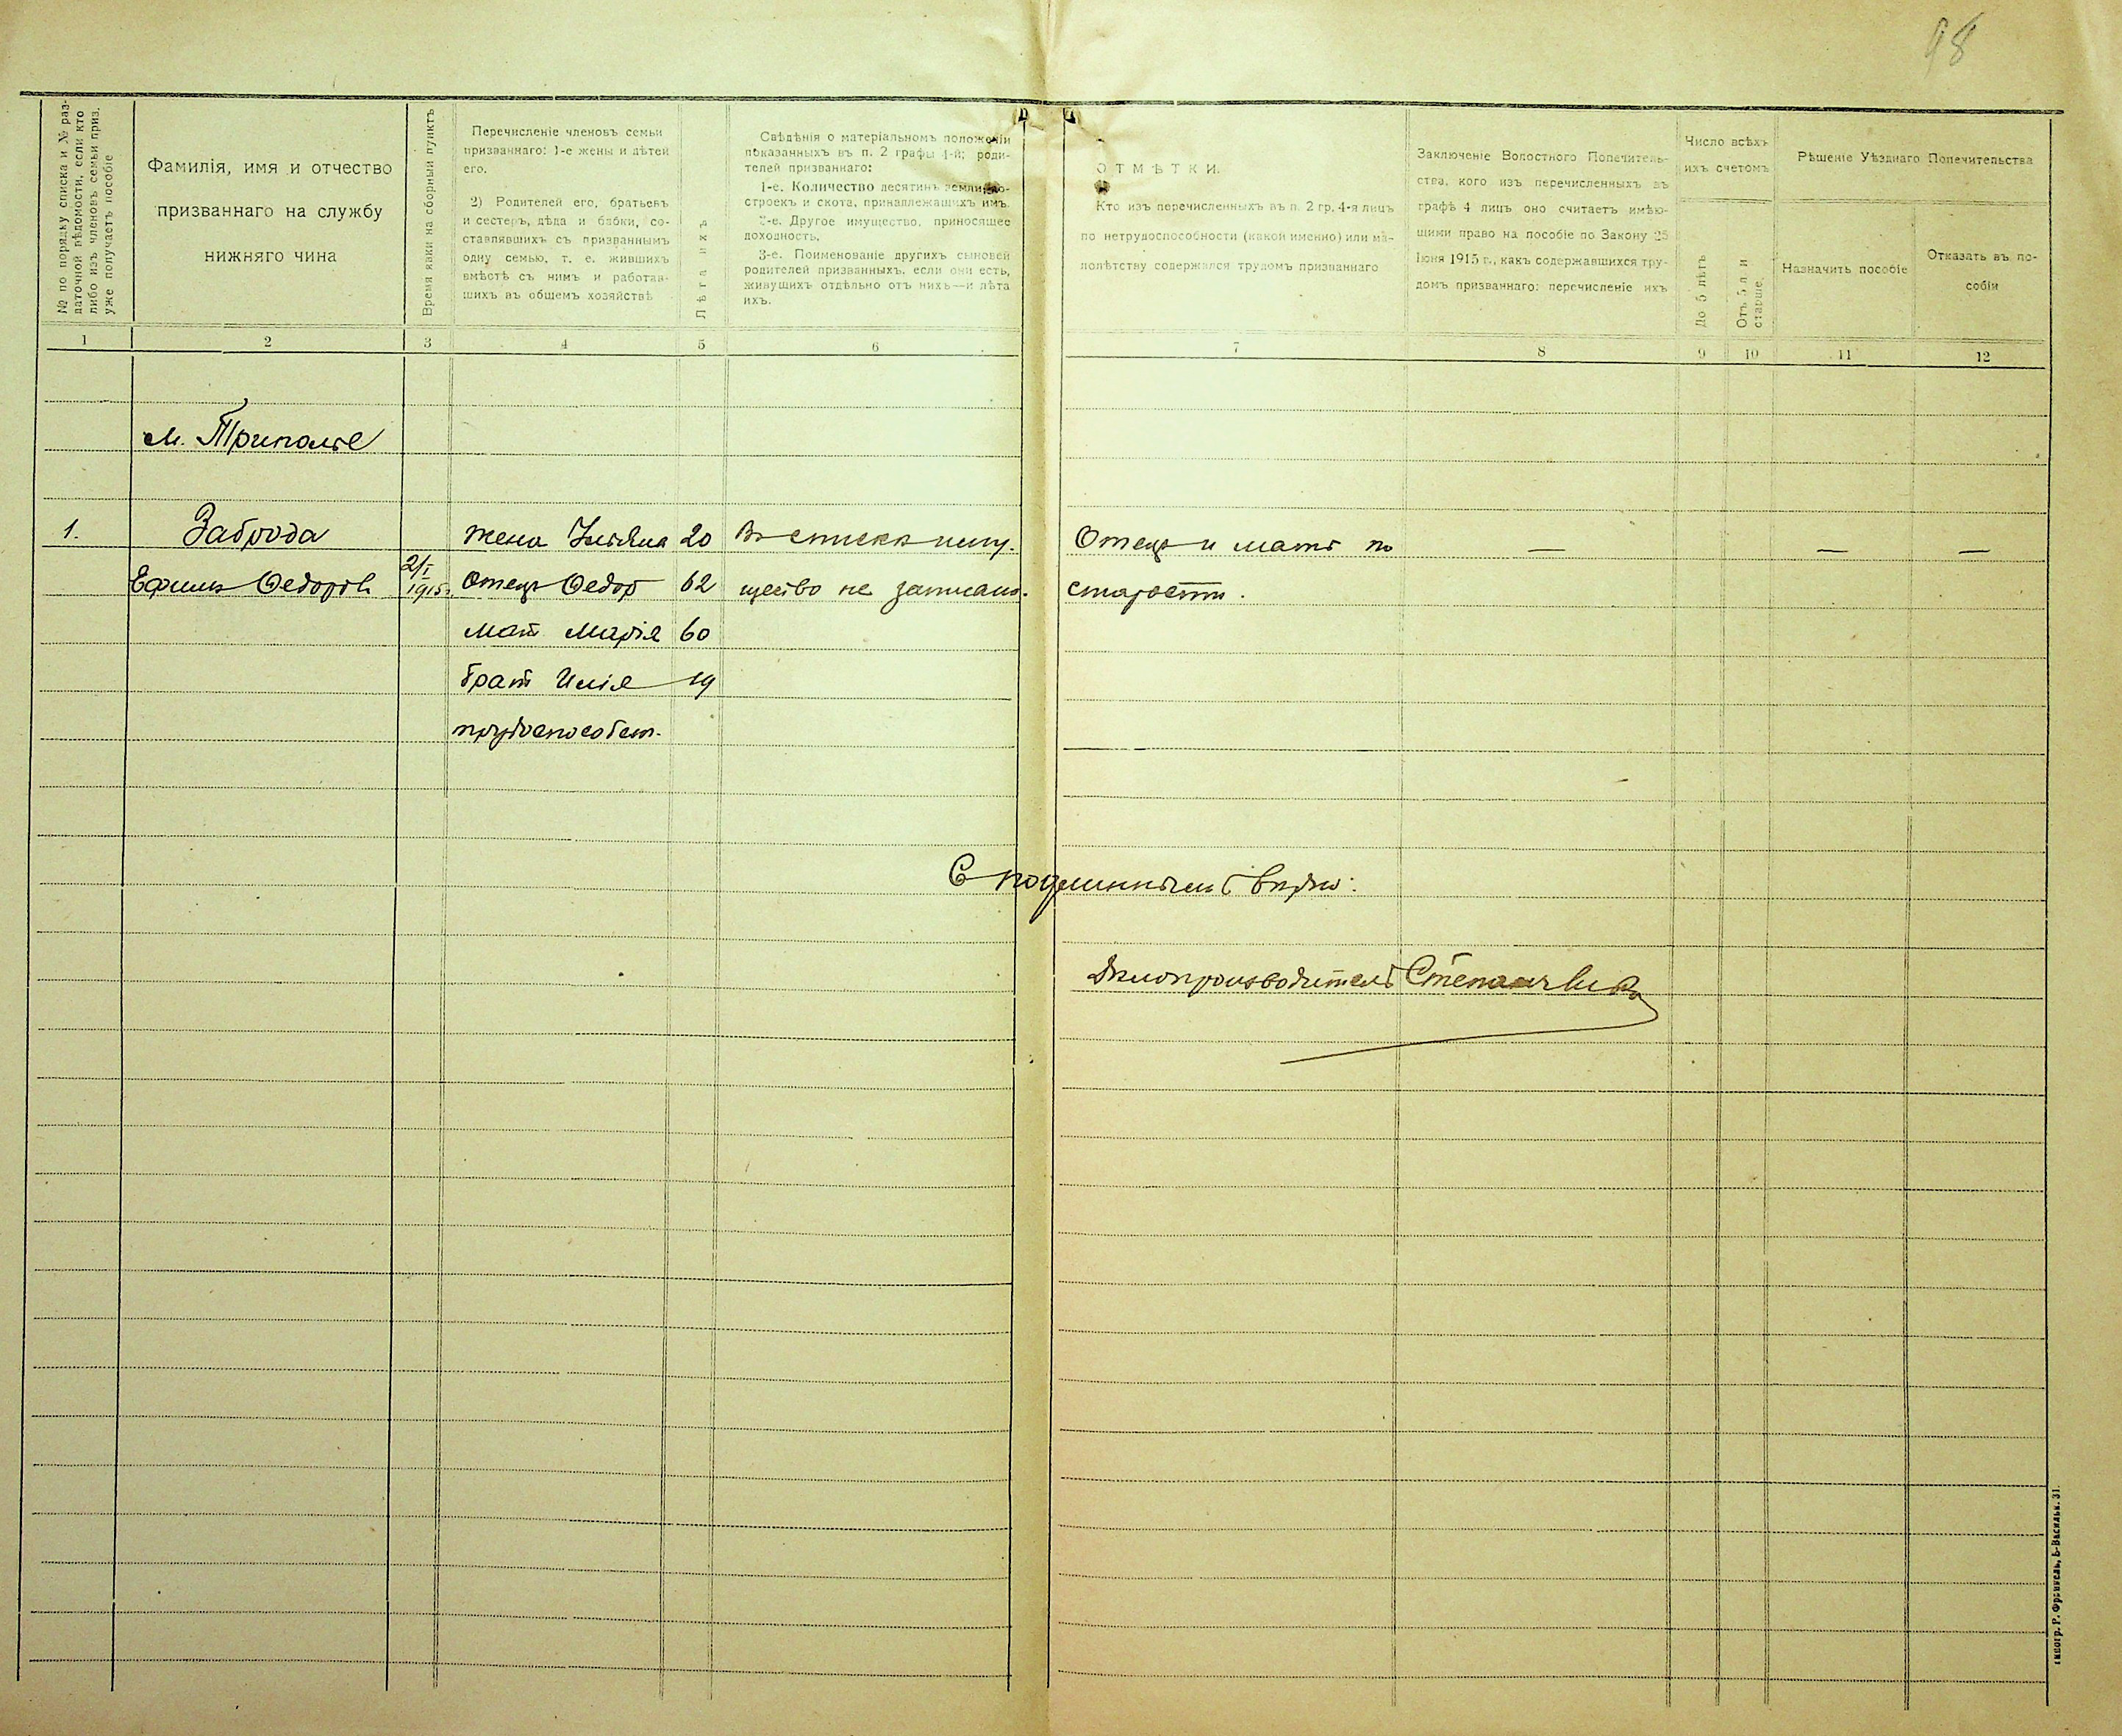 98
№ по порядку списка и № раз-
даточной вѣдомости, если кто
либо изъ членовъ семьи приз.
уже получаетъ пособіе
Фамилія, имя и отчество
призваннаго на службу
нижняго чина
Время явки на сборный пунктъ
Перечисленіе членовъ семьи
призваннаго: 1-е жены и дѣтей
его.
2) Родителей его, братьевъ
и сестеръ, дѣда и бабки, со-
ставлявшихъ съ призваннымъ
одну семью, т. е. жившихъ
вмѣстѣ съ нимъ и работав-
шихъ въ общемъ хозяйствѣ
Лѣта ихъ
Свѣдѣнія о матеріальномъ положеніи
показанныхъ въ п. 2 графы 4-й; роди-
телей призваннаго:
1-е. Количество десятинъ земли, по-
строекъ и скота, принадлежащихъ имъ.
2-е. Другое имущество, приносящее
доходность.
3-е. Поименованіе другихъ сыновей
родителей призванныхъ, если они есть,
живущихъ отдѣльно отъ нихъ—и лѣта
ихъ.
ОТМѢТКИ.
Кто изъ перечисленныхъ въ п. 2 гр. 4-я лицъ
по нетрудоспособности (какой именно) или ма-
лолѣтству содержался трудомъ призваннаго
Заключеніе Волостного Попечитель-
ства, кого изъ перечисленныхъ въ
графѣ 4 лицъ оно считаетъ имѣю-
щими право на пособіе по Закону 25
Іюня 1915 г., какъ содержавшихся тру-
домъ призваннаго: перечисленіе ихъ
Число всѣхъ
ихъ счетомъ
До 5 лѣтъ
Отъ 5 л. и
старше.
Рѣшеніе Уѣзднаго Попечительства
Назначить пособіе
Отказать въ по-
собіи
1 2 3 4 5 6 7 8 9 10 11 12
м. Триполье
1. Заброда жена Ульяна 20 Въ списке иму- Отецъ и мать по — — —
Ефимъ Федоровъ 2/I 1915г. Отецъ Федор 62 щество не записано. старости.
Мат Марія 60
брат Илія 19
трудоспособен.
С подлинным верно:
Делопроизводитель